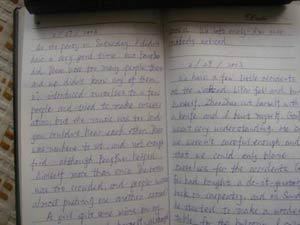 At the party on Saturday, I didn't
have a very good time, but
did. There were too many people there
and we didn't know any of them.
I introduced ourselves to a few
people and tried to make conver-
sation, but the music was too loud
we couldn't hear each other. There
was nowhere to sit, and not enough
food, although helped
himself more than once. The room
was too crowded, and people were
almost pushing one another
A girl spilt some wine on my
We left early. I'm sure
nobody noticed.
We have a few little accidents
at the weekend. Lilian fell and hurt
herself. cut herself with a
knife and I burnt myself.
wasn't very understanding. He said
we weren't careful enough and
that we could only blame
ourselves for the accidents.
had bought a do-it-yourself
book in carpentry, and on Sunday
he started to make a wooden
table for the